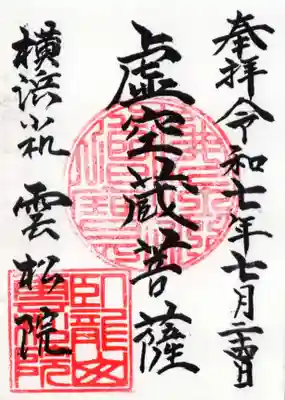 奉拝 令和七年七月二十四日
虚空蔵菩薩
横浜小机 雲松院
臥龍山
雲松院